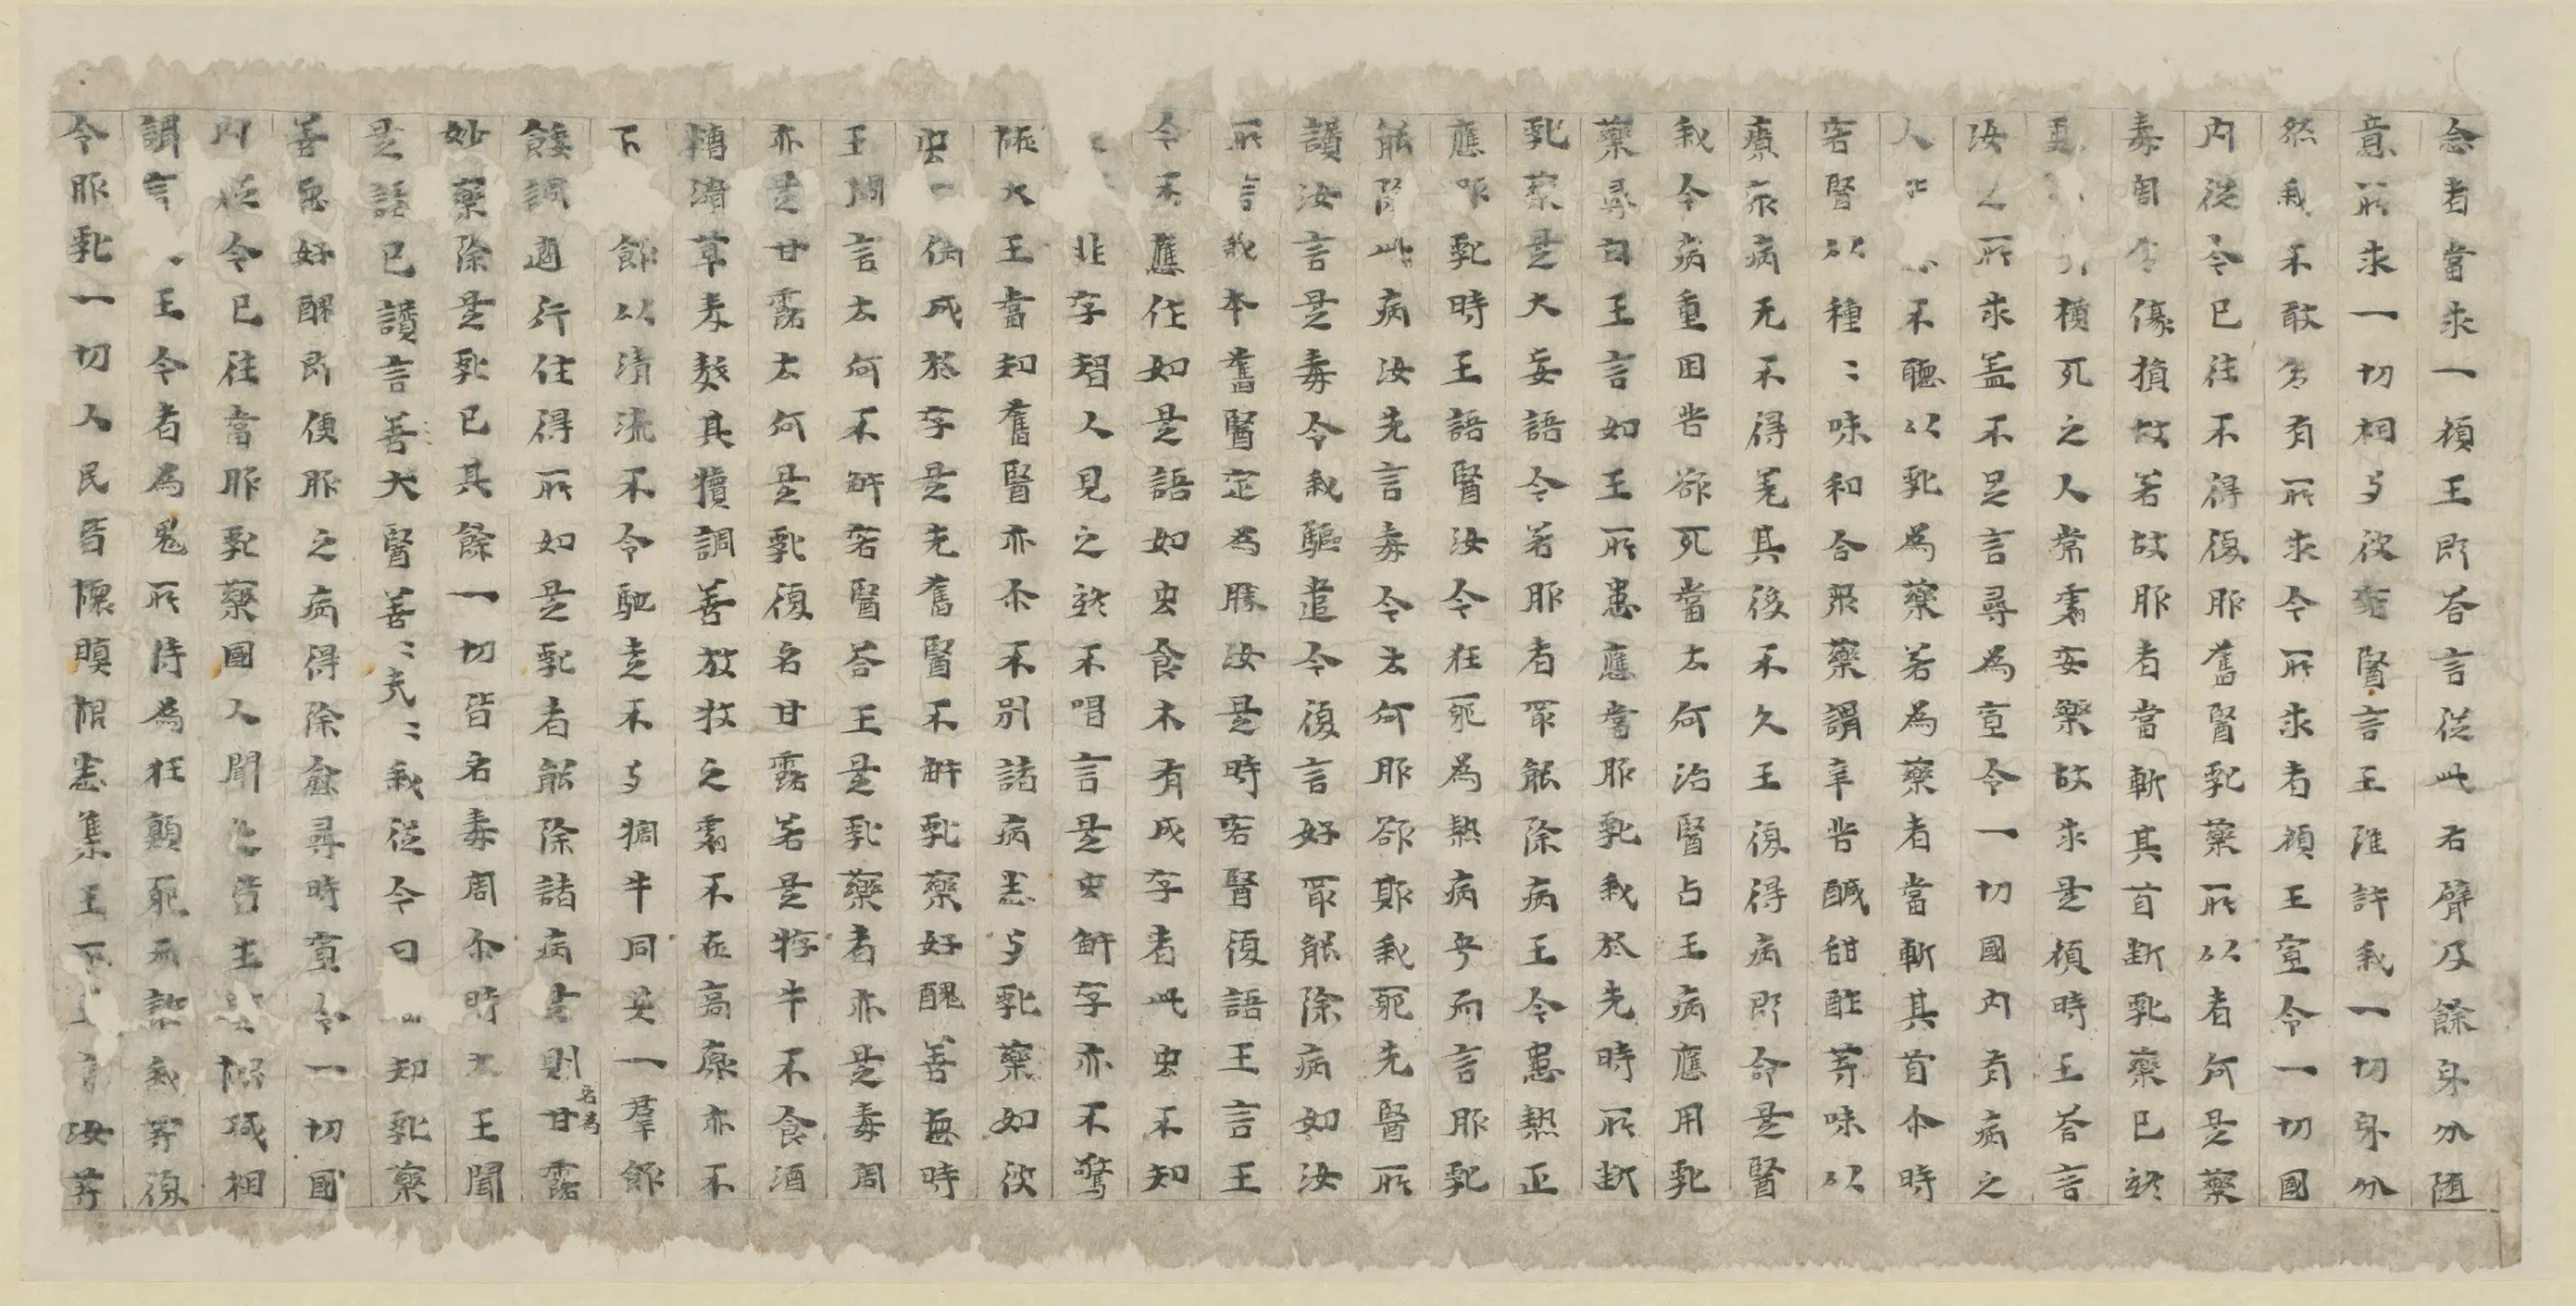 念者當求一願王即答言從此右臂及餘身分随
意所求一切相与彼客醫言王雖許我一切身分
然我不敢多有所求今所求者願王宣令一切國
内從今已往不得復服舊醫乳藥所以者何是藥
毒害傷損故若故服者當斬其首斷乳藥已終
更橫死之人常處安樂故求是願時王答言
汝之所求盖不足言尋為宣令一切國内有病之
人不聽以乳為藥若為藥者當斬其首尒時
客醫以種〻味和合眾藥謂辛苦醎甜酢等味以
療眾病无不得差其後不久王復得病即命是醫
我今病重困苦欲死當云何治醫占王病應用乳
藥尋白王言如王所患應當服乳我於先時所斷
乳藥是大妄語今若服者最能除病王今患熱正
應服乳時王語醫汝今狂耶為熱病乎而言服乳
能除此病汝先言毒今云何服欲欺我耶先醫所
讚汝言是毒令我驅遣今復言好最能除病如汝
所言我本舊醫定為勝汝是時客醫復語王言王
今不應作如是語如虫食木有成字者此虫不知
非字智人見之終不唱言是虫解字亦不驚
恠大王當知舊醫亦尒不別諸病悉与乳藥如彼
虫偶成於字是先舊醫不解乳藥好醜善惡時
王問言云何不解客醫答王是乳藥者亦是毒害
亦是甘露云何是乳復名甘露若是牸牛不食酒
糟滑草麦䴬其犢調善放牧之處不在高原亦不
下飲以清流不令馳走不与犅牛同共一群飲
餧調適行住得所如是乳者能除諸病是則名為甘露
妙藥除是乳已其餘一切皆名毒害尒時大王聞
是語已讚言善大醫善〻哉〻我從今日始知乳藥
善惡好醜即便服之病得除愈尋時宣令一切國
内從今已往當服乳藥國人聞之皆生瞋恨咸相
謂言王今者為鬼所持為狂顛耶而誑我等復
令服乳一切人民皆懷瞋恨悉集王所王言汝等